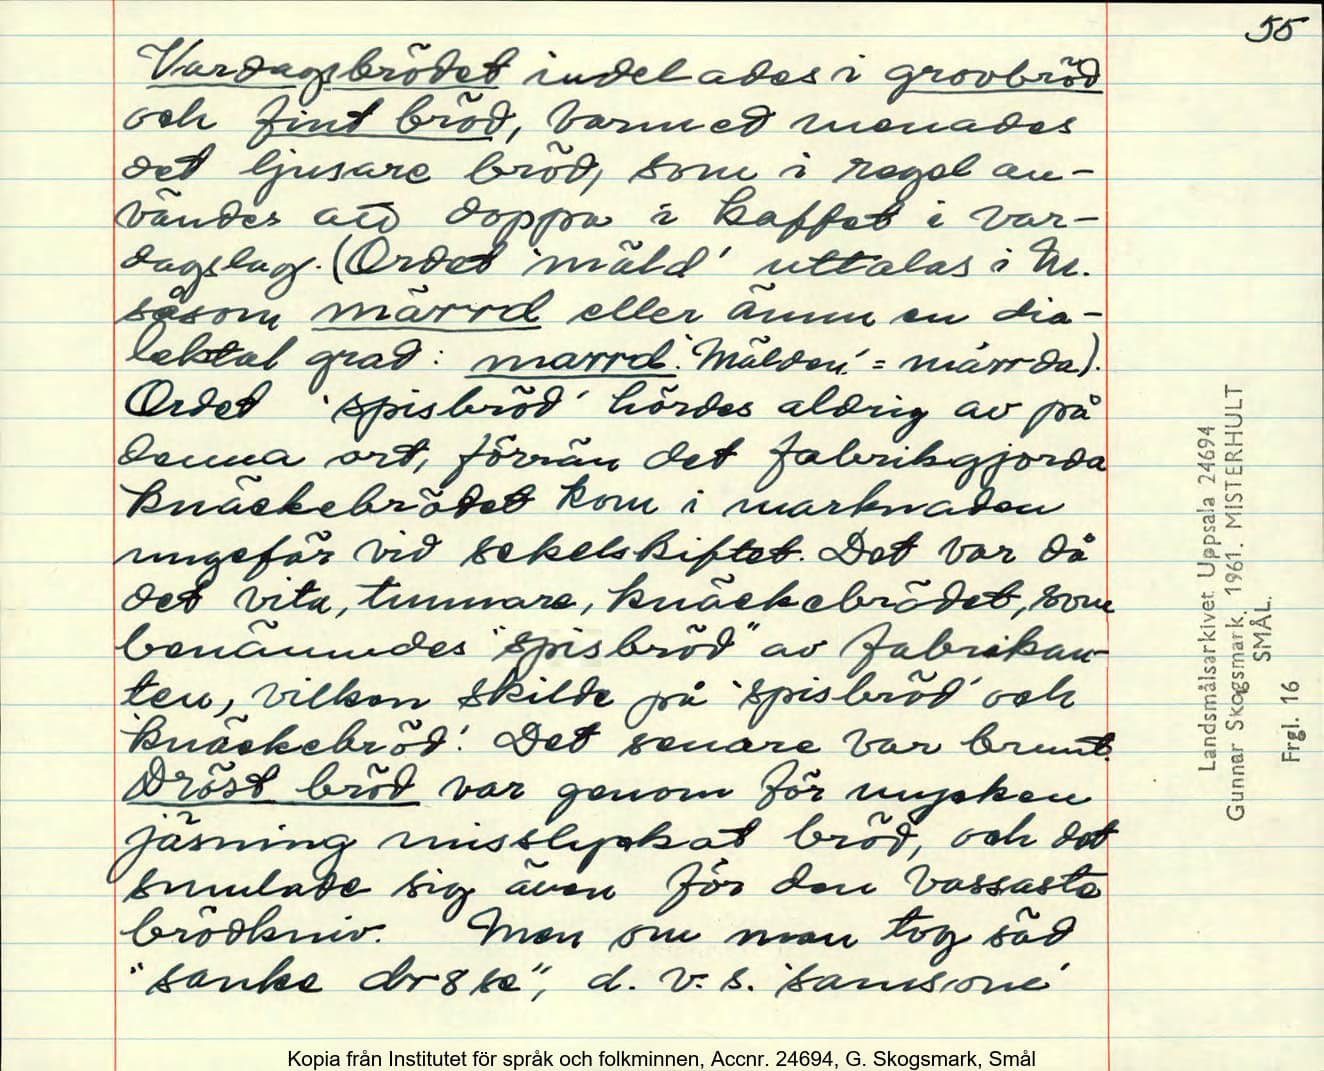 55
Vardagsbrödet indelades i grovbröd
och fint bröd, varmed menades
det ljusare bröd, som i regel an-
vändes att doppa i kaffet i var-
dagslag. (Ordet 'mäld' uttalas i M.
såsom märrd eller ännu en dia-
lektal grad: marrd. 'Mälden' = märrda).
Ordet 'spisbröd' hördes aldrig av på
denna ort, förrän det fabrikgjorda
knäckebrödet kom i marknaden
ungefär vid sekelskiftet. Det var då
det vita, tunnare, knäckebrödet, som
benämndes "spisbröd" av fabrikan-
ten, vilken skilde på 'spisbröd' och
'knäckebröd'. Det senare var brunt.
Dröst bröd var genom för mycken
jäsning misslyckat bröd, och det
smulade sig även för den vassaste
brödkniv. Men om man tog säd
"sanke dr8se", d. v. s. 'samsone'
Landsmålsarkivet Uppsala 24694
Gunnar Skogsmark. 1961. MISTERHULT
SMÅL.
Frgl. 16
Kopia från Institutet för språk och folkminnen, Accnr. 24694, G. Skogsmark, Smål